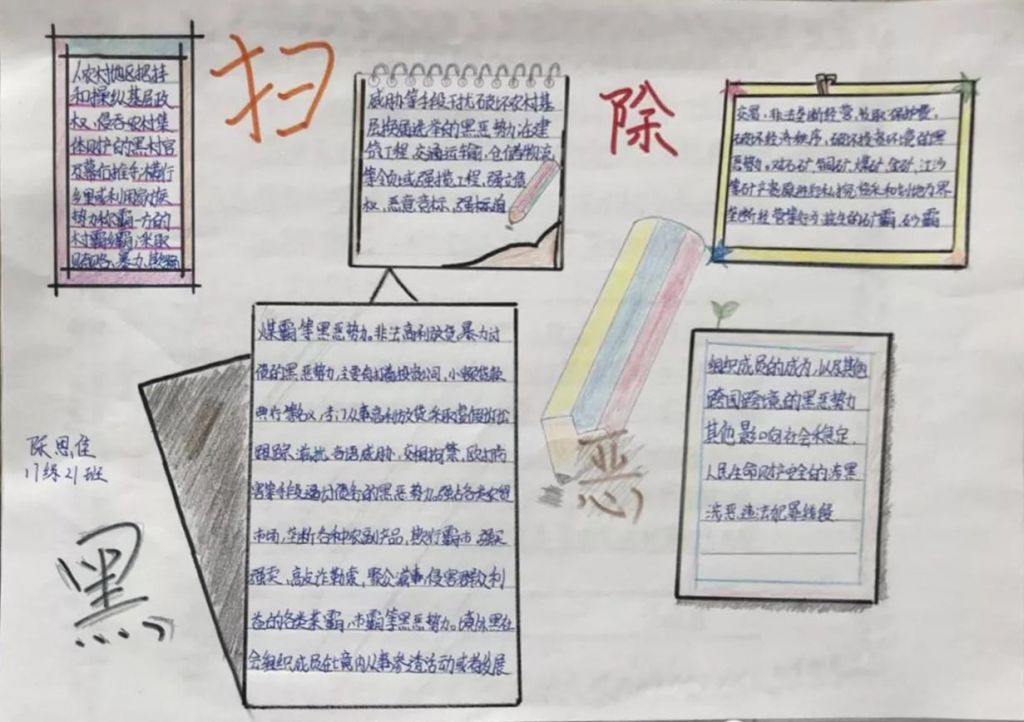 扫
黑
除
恶
人农村地区把持
和操纵基层政
权，侵吞农村集
体财产的黑村官
及幕后推手，横行
乡里或利用家族
势力称霸一方的
村霸乡霸，采取
贿赂、暴力、欺骗
威胁等手段干扰破坏农村基
层换届选举的黑恶势力。在建
筑工程，交通运输，仓储物流
等领域，强揽工程，强立债
权，恶意竞标，强揽
交易，非法垄断经营，收取保护费，
破坏经济秩序，破坏投资环境的黑
恶势力。对石矿，铜矿，煤矿，金矿，江沙
等矿产资源进行私挖
垄断经营等行为滋生的矿霸，砂霸
煤霸等黑恶势力。非法高利放贷，暴力讨
债的黑恶势力，主要有打着投资公司，小额贷款
典行等名义，专门从事高利放贷采取虚假诉讼
跟踪滋扰，言语威胁，
害等手段逼讨债务的黑恶势力。强占各类农贸
市场，垄断各种农副产品，欺行霸市，强买
强卖，高价敲诈勒索，聚众滋事，侵害群众利
益的各类菜霸，市霸等黑恶势力。境外黑社
会组织成员在境内从事渗透活动或者发展
组织成员的成为，以及其他
跨国跨境的黑恶势力
其他影响社会稳定，
人民生命财产安全的涉黑
涉恶，违法犯罪线索
陈思佳
17综21班